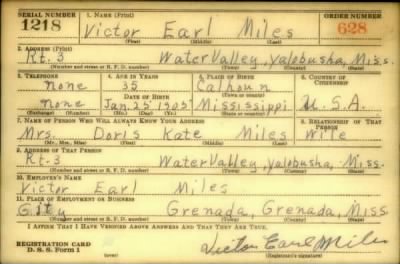 SERIAL NUMBER 1. NAME (Print) ORDER NUMBER
1218 Victor Earl Miles 628
(First) (Middle) (Last)
2. ADDRESS (Print)
Rt. 3 Water Valley, Yalobusha, Miss.
(Number and street or R. F. D. number) (Town) (County) (State)
3. TELEPHONE 4. AGE IN YEARS 5. PLACE OF BIRTH 6. COUNTRY OF CITIZENSHIP
none 35 Calhoun
DATE OF BIRTH (Town or county)
none Jan. 25 1905 Mississippi U.S.A.
(Exchange) (Number) (Mo.) (Day) (Yr.) (State or country)
7. NAME OF PERSON WHO WILL ALWAYS KNOW YOUR ADDRESS 8. RELATIONSHIP OF THAT PERSON
Mrs. Doris Kate Miles Wife
(Mr., Mrs., Miss) (First) (Middle) (Last)
9. ADDRESS OF THAT PERSON
Rt. 3 Water Valley, Yalobusha, Miss.
(Number and street or R. F. D. number) (Town) (County) (State)
10. EMPLOYER'S NAME
Victor Earl Miles
11. PLACE OF EMPLOYMENT OR BUSINESS
Grenada, Grenada, Miss
(Number and street or R. F. D. number) (Town) (County) (State)
I AFFIRM THAT I HAVE VERIFIED ABOVE ANSWERS AND THAT THEY ARE TRUE.
REGISTRATION CARD Victor Earl Miles
D. S. S. Form 1 (over) (Registrant's signature)